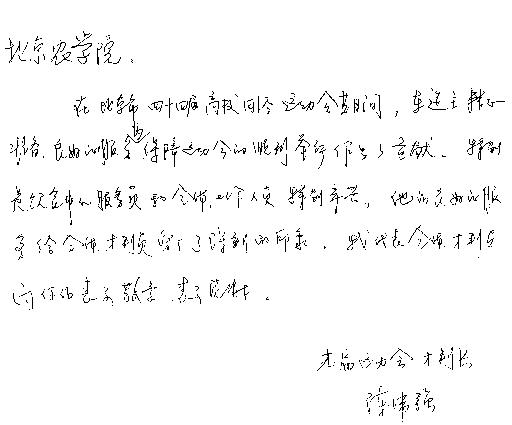 北京农学院。
在北京市四十四届高校田径运动会期间，东道主精心
准备、良好的服务为保障运动会的顺利举行作出了贡献。特别
是饮食中心服务员和全体工作人员特别辛苦，他们良好的服
务给全体裁判员留下了深刻的印象。我代表全体裁判员
向你们表示敬意、表示感谢。
本届运动会裁判长
陈伟强